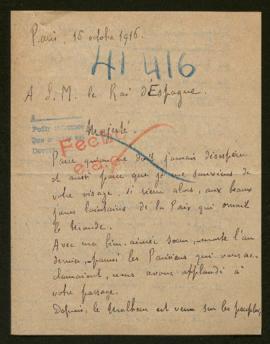 Paris, 16 octobre 1916.
41 416
A S. M. le Roi d'Espagne.
Majesté,
Parce qu'on ne doit jamais désespérer
et aussi parce que je me souviens de
votre visage si serein alors, aux beaux
jours lointains de la Paix qui ornait
le Monde.
Avec ma bien-aimée sœur,
parmi les Parisiens qui vous ac-
clamaient, nous avons applaudi à
votre passage.
Depuis, le malheur est venu sur les peuples,